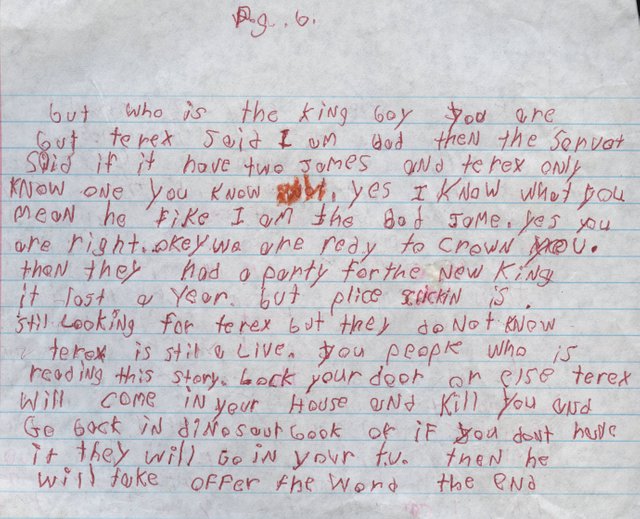 Pg. 6.
but who is the king boy you are
but terex said I am bad then the servat
said if it have two James and terex only
know one you know . yes I know what you
mean he like I am the bad Jame. yes you
are right. okey we are redy to crown you.
then they had a party for the new king
it last a year. but plice is.
still Looking for terex but they do Not know
terex is still a Live. you people who is
reading this story. Lock your door or else terex
will come in your House and kill you and
Go back in dinosaur book or if you dont have
it they will Go in your t.v. then he
will take offer the word the end